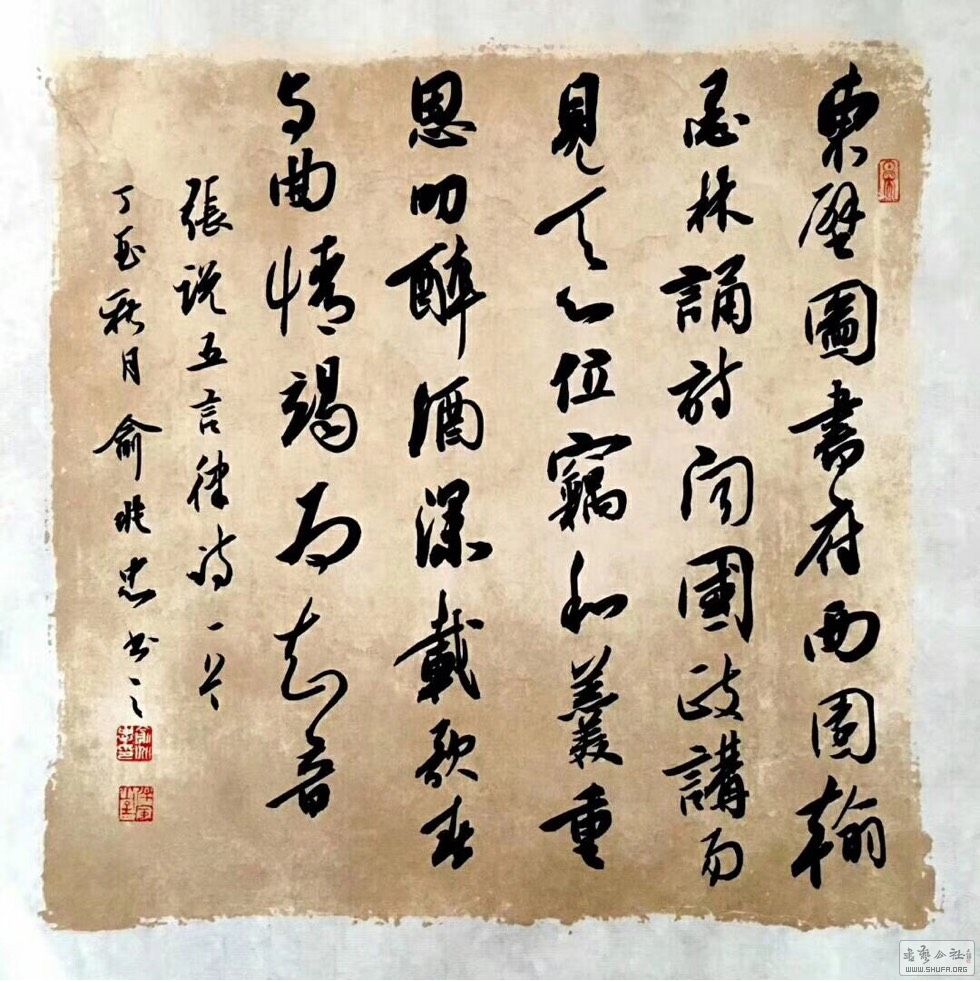 東壁圖書府西園翰
墨林誦詩聞國政講易
見天心位竊和羹重
恩叨醉酒深載歌春
興曲情竭为知音
張説五言律詩一首
丁酉秋月俞兆忠书之
书艺公社
WWW.SHUFA.ORG